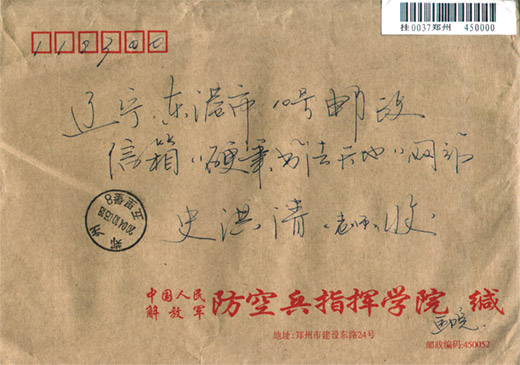 挂0037郑州 450000
112300
辽宁东港市10号邮政
信箱《硬笔书法天地》网站
史洪清(老师)收
郑州
中国人民
解放军
防空兵指挥学院 缄
地址:郑州市建设东路24号
邮政编码:450052